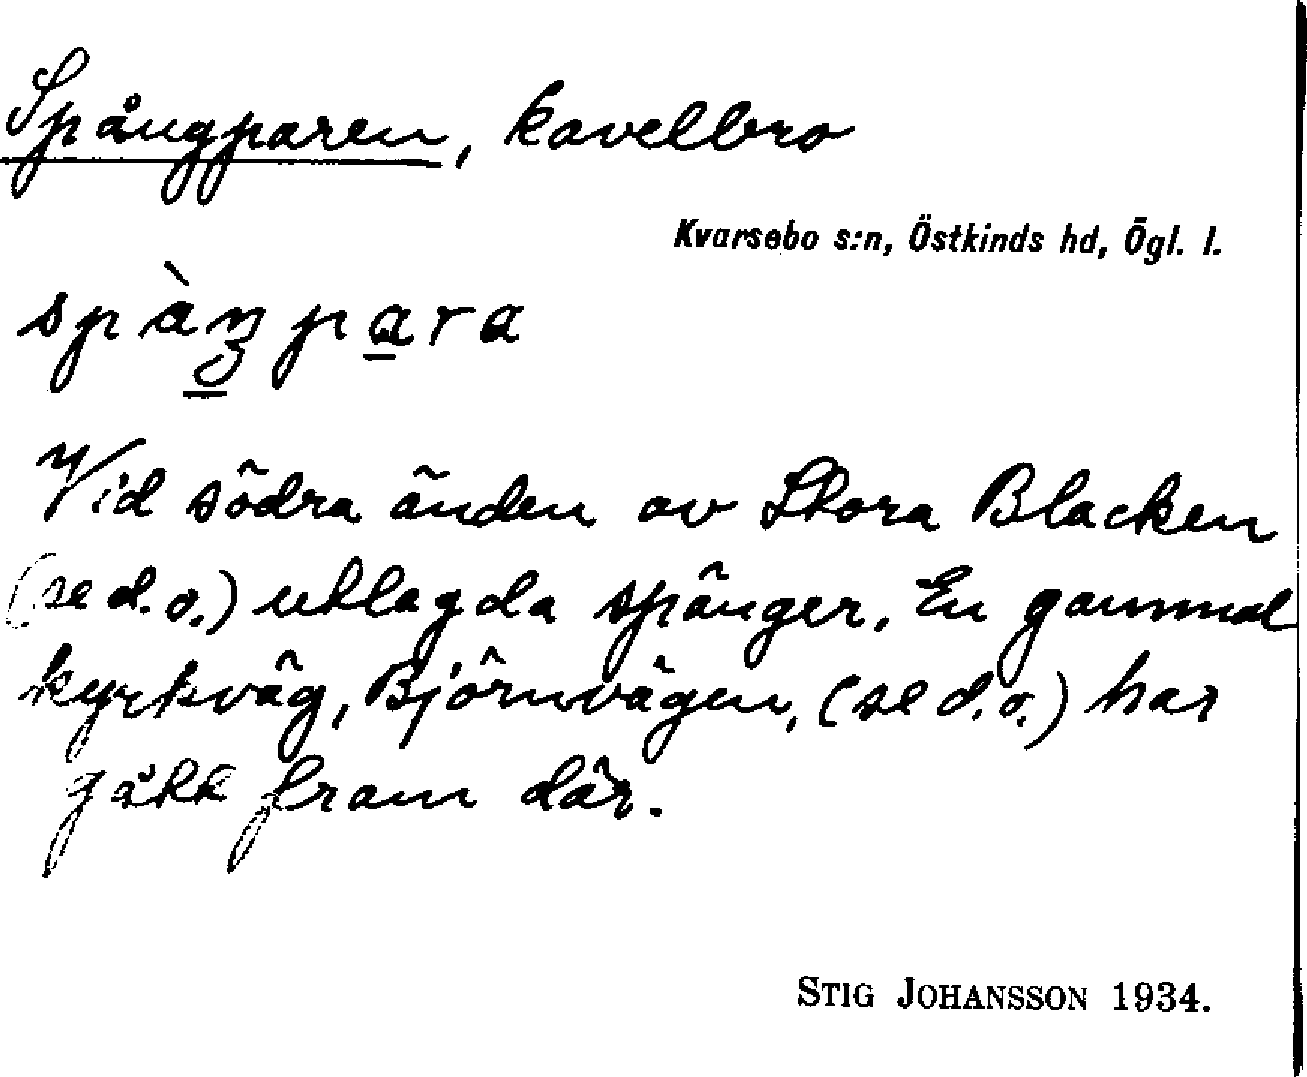 Spångparen, kavelbro
Kvarsebo s:n, Östkinds hd, Ögl. l.
spàŋpara
Vid södra änden av Stora Blacken
(se d.o.) utlagda spänger. En gammal
kyrkväg, Björnvägen, (se d.o.) har
gått fram där.
STIG JOHANSSON 1934.